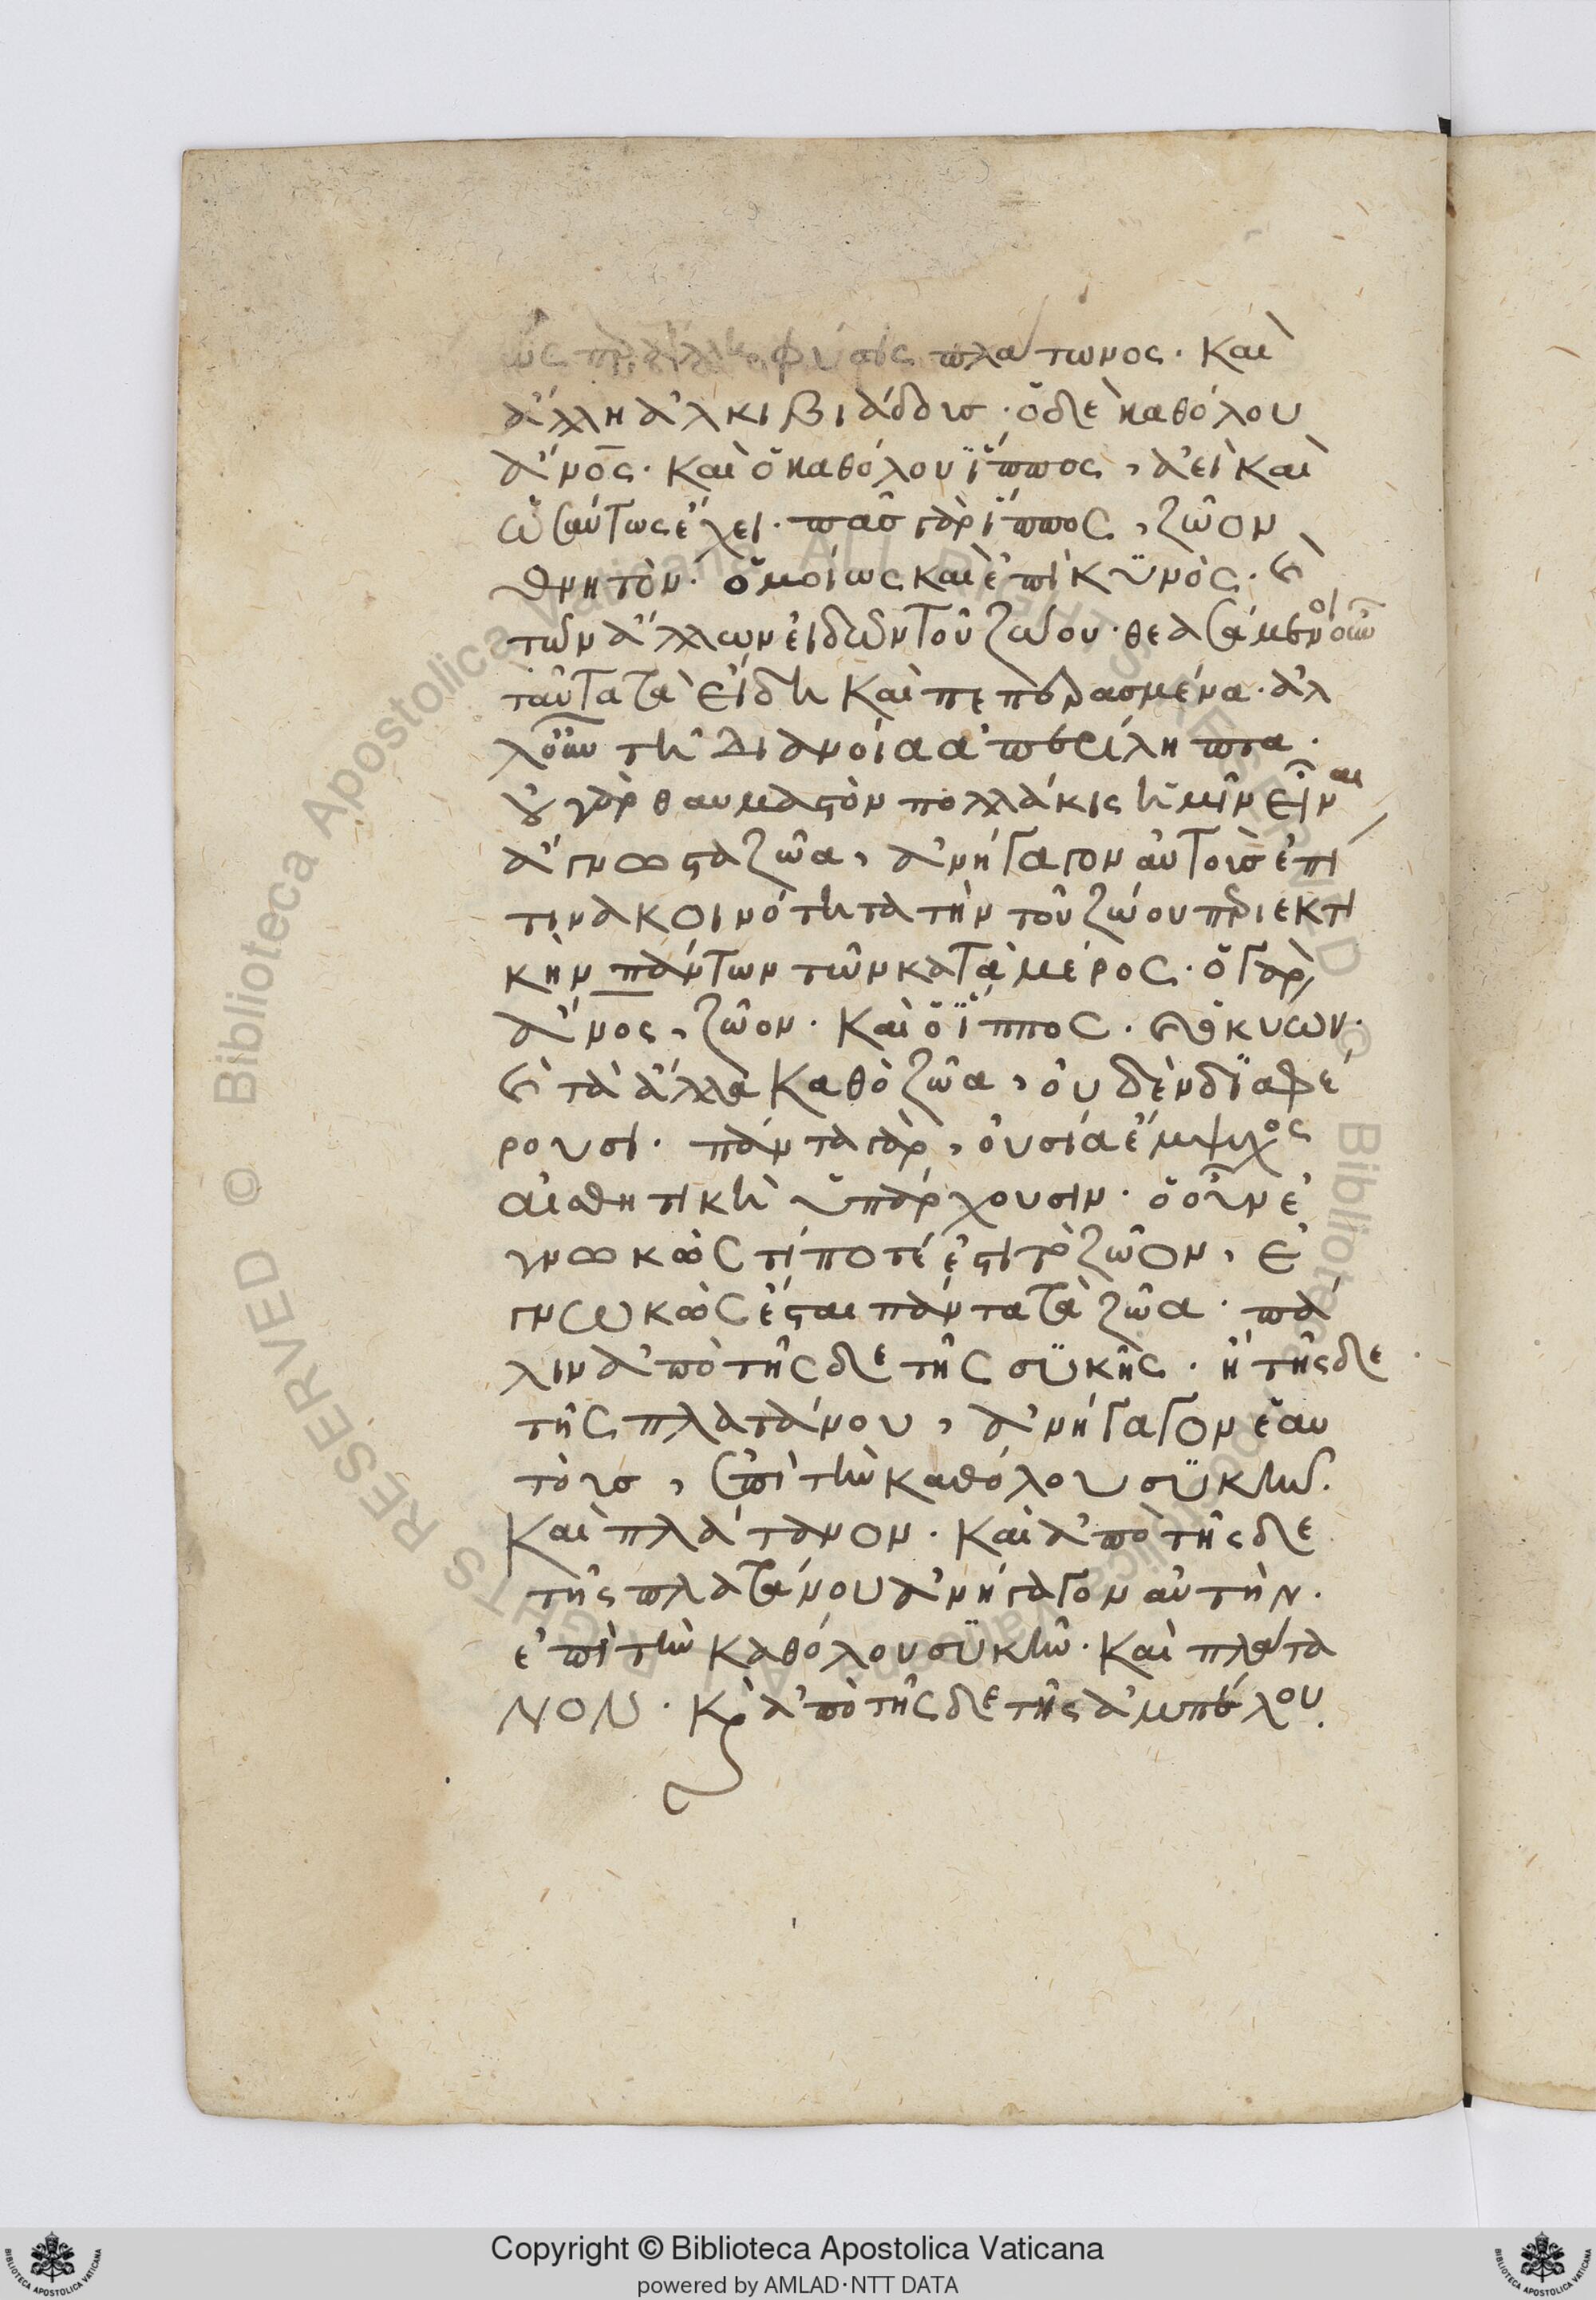 ὡς φύσις πλάτωνος. Καὶ
ἄλλη ἀλκιβιάδους. ὁ δὲ καθόλου
ἄνος. Καὶ ὁ καθόλου ἵππος, ἀεὶ καὶ
ὡσαύτως ἔχει. πᾶς γὰρ ἵππος, ζῶον
θνητόν. ὁμοίως καὶ ἐπὶ κυνὸς. καὶ
τῶν ἄλλων εἰδῶν τοῦ ζώου. θεασάμενοι οὖν
ταῦτα τὰ εἴδη Καὶ πεπερασμένα. ἀλ
λ' οὖν τῆ διανοία ἀπερίληπτα.
οὐ γὰρ θαυμαστὸν πολλάκις ἡμῖν εἶναι
ἄγνωστα ζῶα, ἀνήγαγον αὐτοὺς ἐπί
τινα κοινότητα τὴν τοῦ ζώου περιεκτι
κὴν πάντων τῶν κατὰ μέρος. ὁ γὰρ
ἄνος, ζῶον. Καὶ ὁ ἵππος. καὶ ὁ κυων.
καὶ τὰ ἄλλα Καθὸ ζῶα, οὐδὲν διαφέ
ρουσι. πάντα γὰρ, οὐσία ἔμψυχος
αἰσθητικὴ ὑπάρχουσιν. ὁ οὖν ἐ
γνωκὼς τί ποτέ ἐστι τὸ ζῶον, ἐ
γνωκὼς ἔσται πάντα τὰ ζῶα. πά
λιν ἀπὸ τῆς δε τῆς συκῆς. ἢ τῆς δε
τῆς πλατάνου, ἀνήγαγον ἑαυ
τοὺς, ἐπὶ τὴν καθόλου συκῆν.
Καὶ πλάτανον. Καὶ ἀπὸ τῆς δε
τῆς πλατάνου ἀνήγαγον αὐτὴν.
ἐπὶ τὴν καθόλου συκῆν. Καὶ πλάτα
νον. Καὶ ἀπὸ τῆς δε τῆς ἀμπέλου.
Copyright © Biblioteca Apostolica Vaticana
powered by AMLAD·NTT DATA